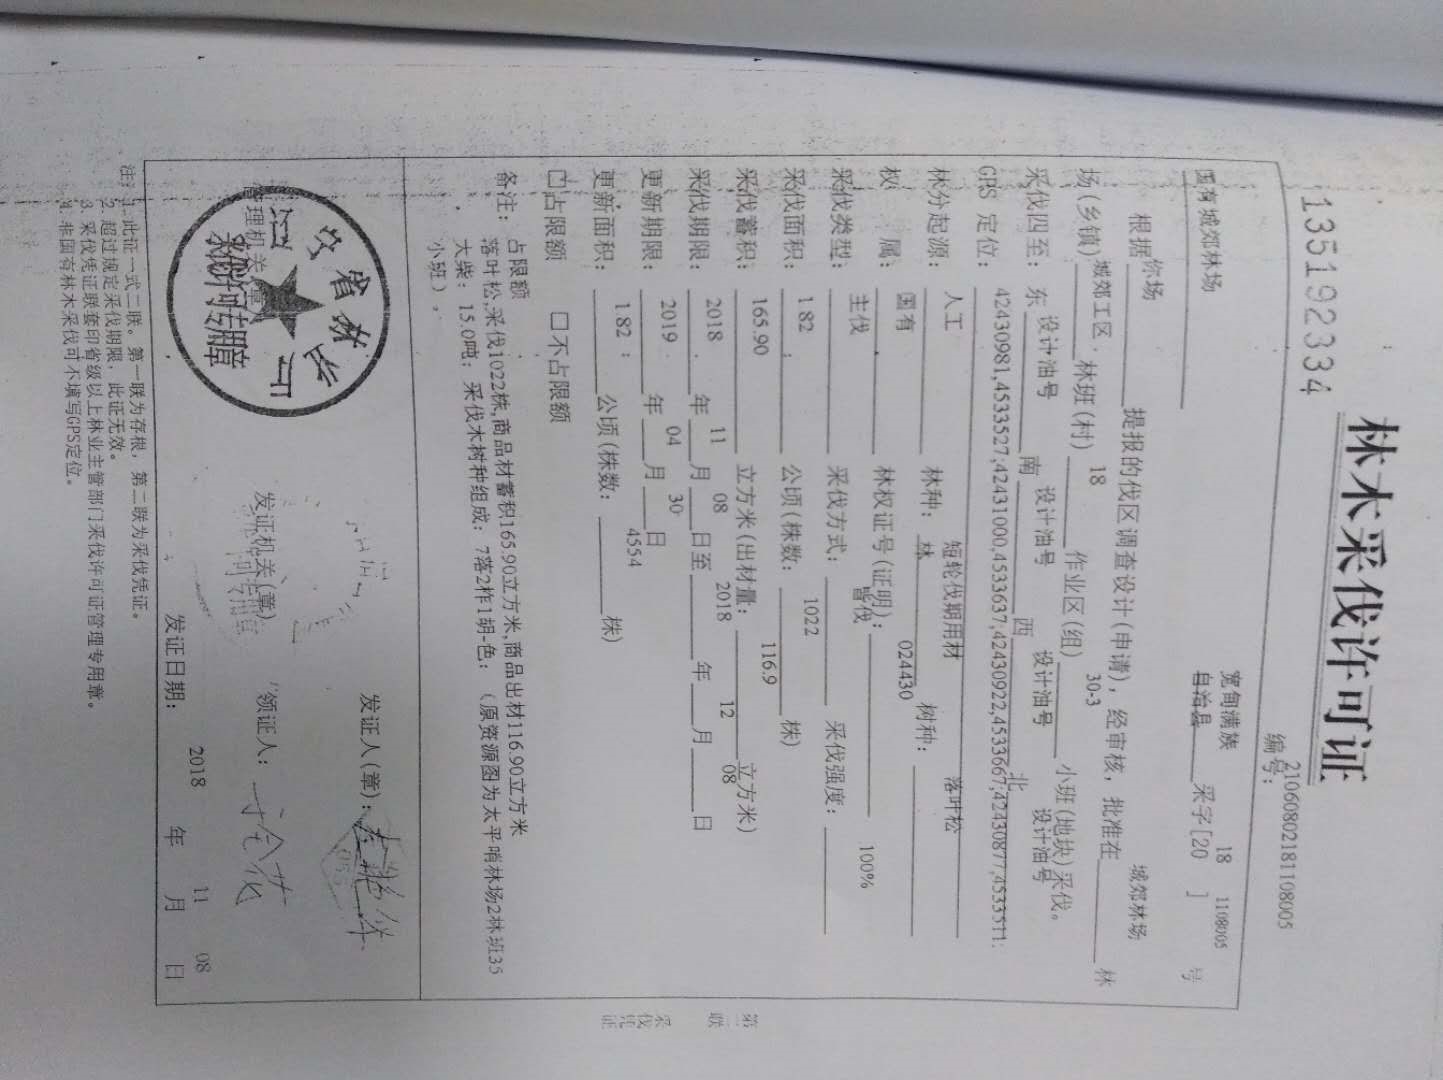 林木采伐许可证
编号：21060802181108005
135192334
宽甸满族自治县 采字[20 18 ] 1108005 号
国有城郊林场
根据 你场 提报的伐区调查设计(申请)，经审核，批准在 城郊林场 林
场(乡镇) 城郊工区 林班(村) 18 作业区(组) 30-3 小班(地块)采伐。
采伐四至：东 设计油号 南 设计油号 西 设计油号 北 设计油号
GPS 定位：42430981,4533527;42431000,4533637;42430922,4533667;42430877,4533511;
林分起源： 人工 林种： 短轮伐期用材林 树种： 落叶松
权 属： 国有 林权证号(证明)： 024430
采伐类型： 主伐 采伐方式： 皆伐 采伐强度： 100%
采伐面积： 1.82 公顷(株数： 1022 株)
采伐蓄积： 165.90 立方米(出材量： 116.9 立方米)
采伐期限： 2018 年 11 月 08 日至 2018 年 12 月 08 日
更新期限： 2019 年 04 月 30 日
更新面积： 1.82 公顷(株数： 4554 株)
口占限额 口不占限额
备注： 占限额
落叶松,采伐1022株,商品材蓄积165.90立方米,商品出材116.90立方米
大柴：15.0吨；采伐木树种组成：7落2柞1胡-色；（原资源图为太平哨林场2林班35
小班）。
发证人(章)：
管理机关(章) 发证机关(章) 领证人：
辽宁省林业厅
采伐许可专用章
发证日期： 2018 年 11 月 08 日
注：1.此证一式二联。第一联为存根，第二联为采伐凭证。
2.超过规定采伐期限，此证无效。
3.采伐凭证联套印省级以上林业主管部门采伐许可证管理专用章。
4.非国有林木采伐可不填写GPS定位。
第二联 采伐凭证